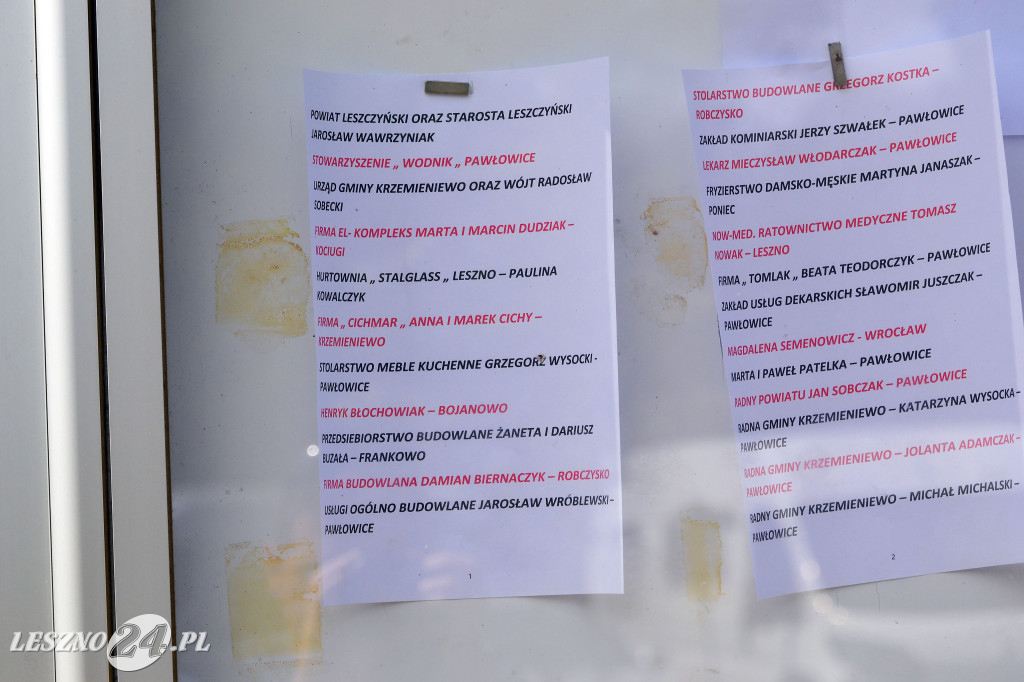 POWIAT LESZCZYŃSKI ORAZ STAROSTA LESZCZYŃSKI
JAROSŁAW WAWRZYNIAK
STOWARZYSZENIE „ WODNIK „ PAWŁOWICE
URZĄD GMINY KRZEMIENIEWO ORAZ WÓJT RADOSŁAW
SOBECKI
FIRMA EL- KOMPLEKS MARTA I MARCIN DUDZIAK –
KOCIUGI
HURTOWNIA „ STALGLASS „ LESZNO – PAULINA
KOWALCZYK
FIRMA „ CICHMAR „ ANNA I MAREK CICHY –
KRZEMIENIEWO
STOLARSTWO MEBLE KUCHENNE GRZEGORZ WYSOCKI -
PAWŁOWICE
HENRYK BŁOCHOWIAK – BOJANOWO
PRZEDSIEBIORSTWO BUDOWLANE ŻANETA I DARIUSZ
BUZAŁA – FRANKOWO
FIRMA BUDOWLANA DAMIAN BIERNACZYK – ROBCZYSKO
USŁUGI OGÓLNO BUDOWLANE JAROSŁAW WRÓBLEWSKI –
PAWŁOWICE
1
STOLARSTWO BUDOWLANE GRZEGORZ KOSTKA –
ROBCZYSKO
ZAKŁAD KOMINIARSKI JERZY SZWAŁEK – PAWŁOWICE
LEKARZ MIECZYSŁAW WŁODARCZAK – PAWŁOWICE
FRYZIERSTWO DAMSKO-MĘSKIE MARTYNA JANASZAK –
PONIEC
NOW-MED. RATOWNICTWO MEDYCZNE TOMASZ
NOWAK – LESZNO
FIRMA „ TOMLAK „ BEATA TEODORCZYK – PAWŁOWICE
ZAKŁAD USŁUG DEKARSKICH SŁAWOMIR JUSZCZAK –
PAWŁOWICE
MAGDALENA SEMENOWICZ - WROCŁAW
MARTA I PAWEŁ PATELKA – PAWŁOWICE
RADNY POWIATU JAN SOBCZAK – PAWŁOWICE
RADNA GMINY KRZEMIENIEWO – KATARZYNA WYSOCKA –
PAWŁOWICE
RADNA GMINY KRZEMIENIEWO – JOLANTA ADAMCZAK –
PAWŁOWICE
RADNY GMINY KRZEMIENIEWO – MICHAŁ MICHALSKI –
PAWŁOWICE
2
LESZNO24.PL